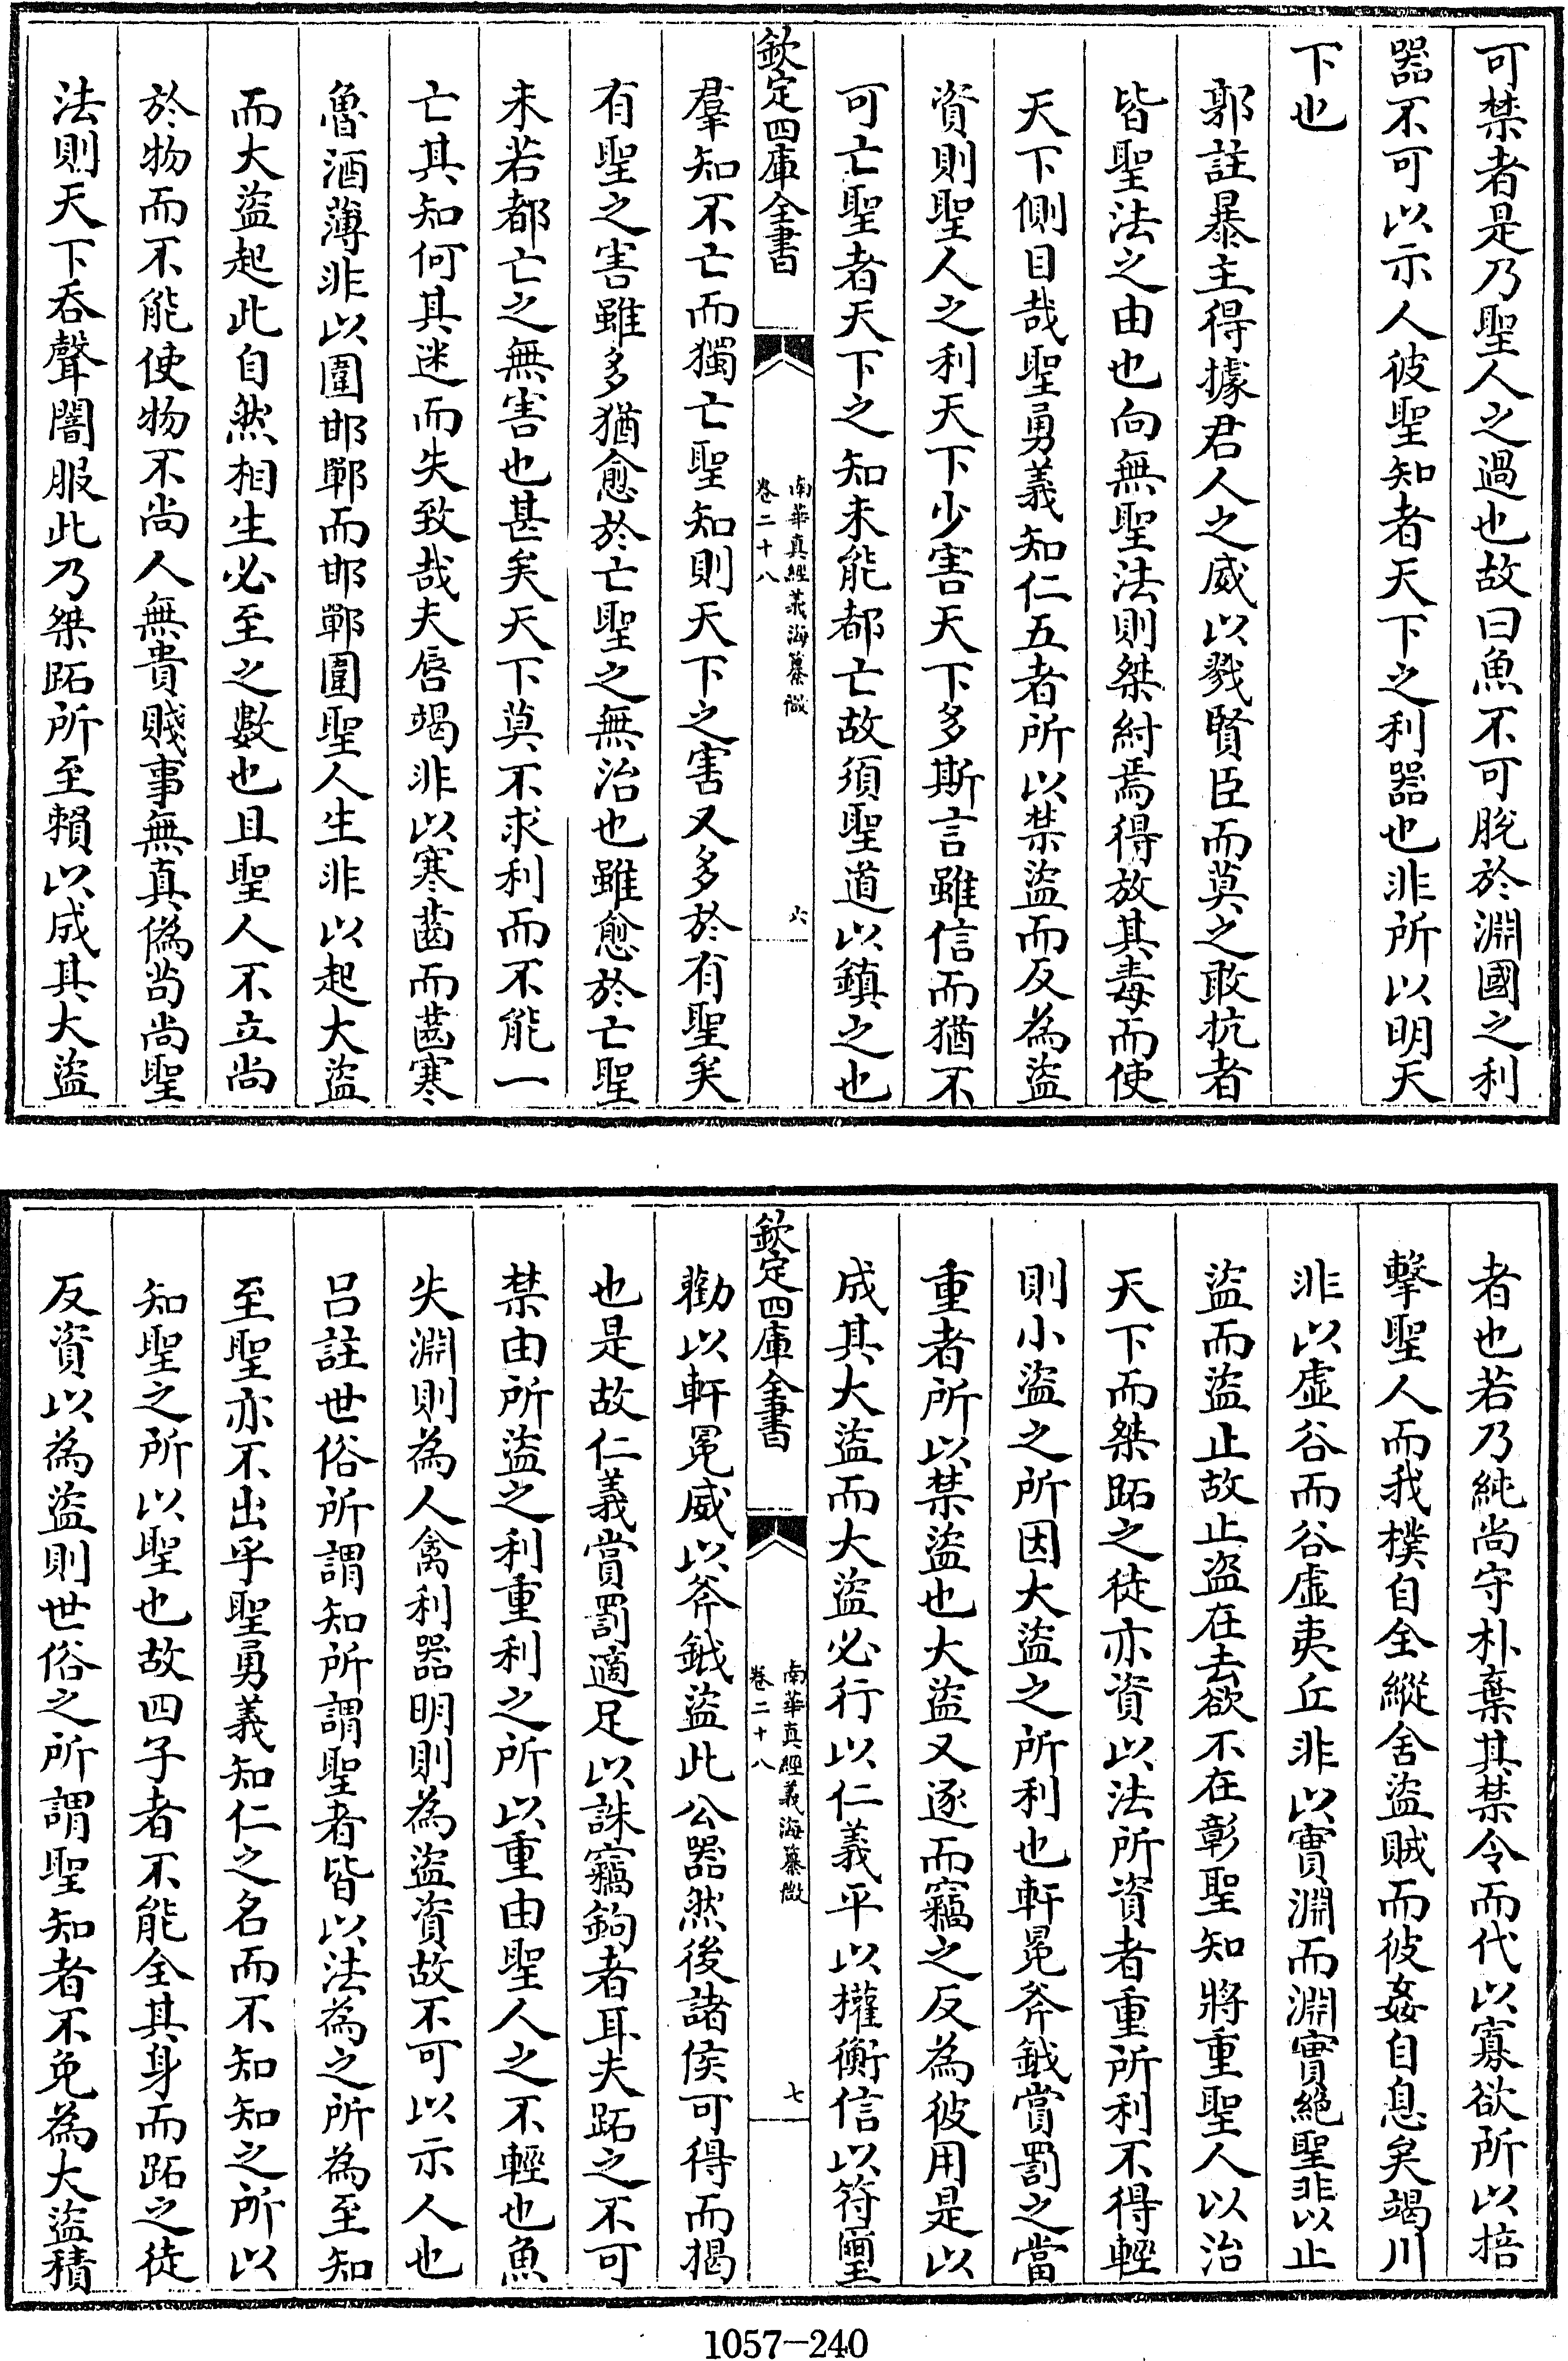 可禁者是乃聖人之過也故曰魚不可脫於淵國之利
器不可以示人彼聖知者天下之利器也非所以明天
下也
郭註暴主得據君人之威以戮賢臣而莫之敢抗者
皆聖法之由也向無聖法則桀紂焉得放其毒而使
天下側目哉聖勇義知仁五者所以禁盜而反為盜
資則聖人之利天下少害天下多斯言雖信而猶不
可亡聖者天下之知未能都亡故須聖道以鎮之也
欽定四庫全書
南華真經義海纂微
卷二十八
六
羣知不亡而獨亡聖知則天下之害又多於有聖矣
有聖之害雖多猶愈於亡聖之無治也雖愈於亡聖
未若都亡之無害也甚矣天下莫不求利而不能一
亡其知何其迷而失致哉夫唇竭非以寒齒而齒寒
魯酒薄非以圍邯鄲而邯鄲圍聖人生非以起大盜
而大盜起此自然相生必至之數也且聖人不立尚
於物而不能使物不尚人無貴賤事無真偽尚尚聖
法則天下吞聲闇服此乃桀跖所至賴以成其大盜
者也若乃純尚守朴棄其禁令而代以寡欲所以掊
擊聖人而我樸自全縱舍盜賊而彼姦自息矣竭川
非以虛谷而谷虛夷丘非以實淵而淵實絕聖非以止
盜而盜止故止盜在去欲不在彰聖知將重聖人以治
天下而桀跖之徒亦資以法所資者重所利不得輕
則小盜之所因大盜之所利也軒冕斧鉞賞罰之當
重者所以禁盜也大盜又逐而竊之反為彼用是以
成其大盜而大盜必行以仁義平以權衡信以符璽
欽定四庫全書
南華真經義海纂微
卷二十八
七
勸以軒冕威以斧鉞盜此公器然後諸侯可得而揭
也是故仁義賞罰適足以誅竊鉤者耳夫跖之不可
禁由所盜之利重利之所以重由聖人之不輕也魚
失淵則為人禽利器明則為盜資故不可以示人也
呂註世俗所謂知所謂聖者皆以法為之所為至知
至聖亦不出乎聖勇義知仁之名而不知知之所以
知聖之所以聖也故四子者不能全其身而跖之徒
反資以為盜則世俗之所謂聖知者不免為大盜積
1057-240